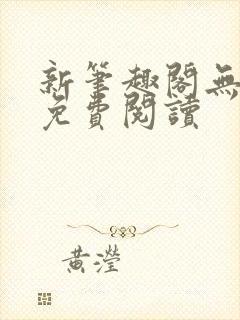 新筆趣閣無
免費閱讀
黃瀅